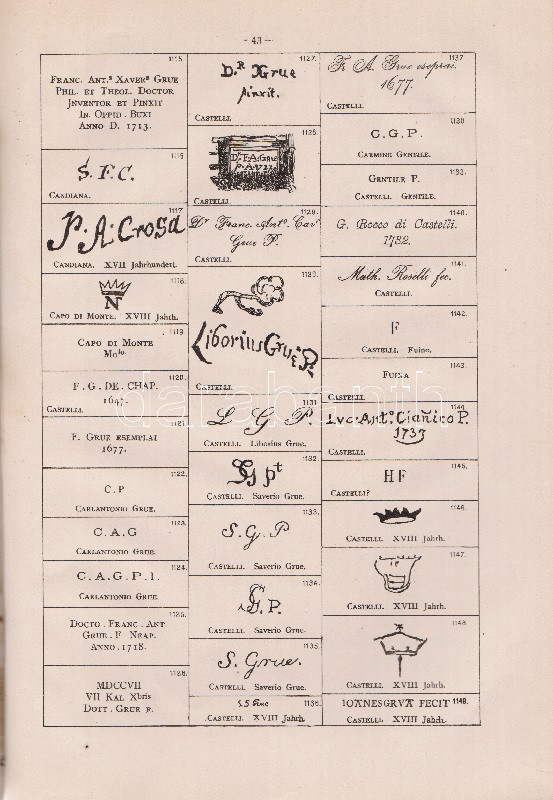 - 43 -
1115.
FRANC. ANT.s XAVERs GRUE
PHIL. ET THEOL. DOCTOR
JNVENTOR ET PINXIT
IN OPPID. BUXI
ANNO D. 1713.
1116.
S. F. C.
CANDIANA.
1117.
P. A. Crosa
CANDIANA. XVII Jahrhundert.
1118.
N
CAPO DI MONTE. XVIII Jahrh.
1119.
CAPO DI MONTE
Molo.
1120.
F. G. DE. CHAP.
1647.
CASTELLI.
1121.
F. GRUE ESEMPLAI
1677.
1122.
C. P
CARLANTONIO GRUE.
1123.
C. A. G
CARLANTONIO GRUE.
1124.
C. A. G. P. I.
CARLANTONIO GRUE.
1125.
DOCTO. FRANC. ANT
GRUE. F NEAP.
ANNO. 1718.
1126.
MDCCVII
VII KAL Xbris
DOTT. GRUE F.
1127.
D.R Grue
pinxit.
CASTELLI.
1128.
Dr F. A. GRUE
P. A. 1737.
CASTELLI.
1129.
Dr Franc. Anto. Cavr
Grue P.
CASTELLI.
1130.
Liborius Grue P.
CASTELLI.
1131.
L G P.
CASTELLI. Liborius Grue.
1132.
SG pt
CASTELLI. Saverio Grue.
1133.
S. G. P
CASTELLI. Saverio Grue.
1134.
G. P.
CASTELLI. Saverio Grue.
1135.
S. Grue.
CASTELLI. Saverio Grue.
1136.
S. Grue
CASTELLI. XVIII Jahrh.
1137
Fr. A. Grue eseprai.
1677.
CASTELLI.
1138.
C. G. P.
CARMINE GENTILE.
1139.
GENTILE P.
CASTELLI. GENTILE.
1140.
G. Rocco di Castelli.
1732.
1141.
Math. Roselli fec.
CASTELLI.
1142.
F
CASTELLI. Fuino.
1143.
FUINA
CASTELLI.
1144.
Lvc. Ant.o Ciañico P.
1737
CASTELLI.
1145.
HF
CASTELLI?
1146.
CASTELLI. XVIII Jahrh.
1147.
CASTELLI. XVIII Jahrh.
1148.
CASTELLI. XVIII Jahrh.
IOANESGRVA FECIT 1149.
CASTELLI. XVIII Jahrh.
darabanth